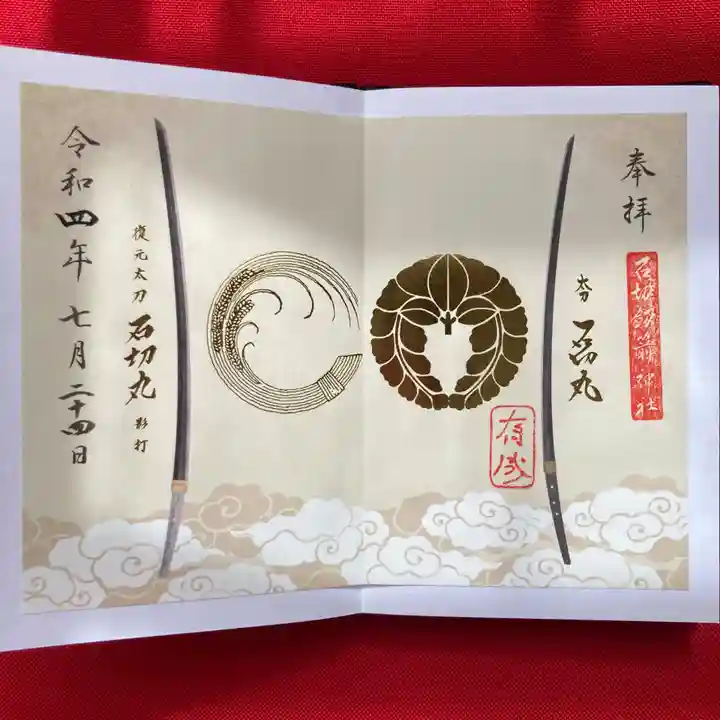 奉拝
石切劔箭神社
太刀 石切丸
有成
復元太刀 石切丸 影打
令和四年七月二十四日